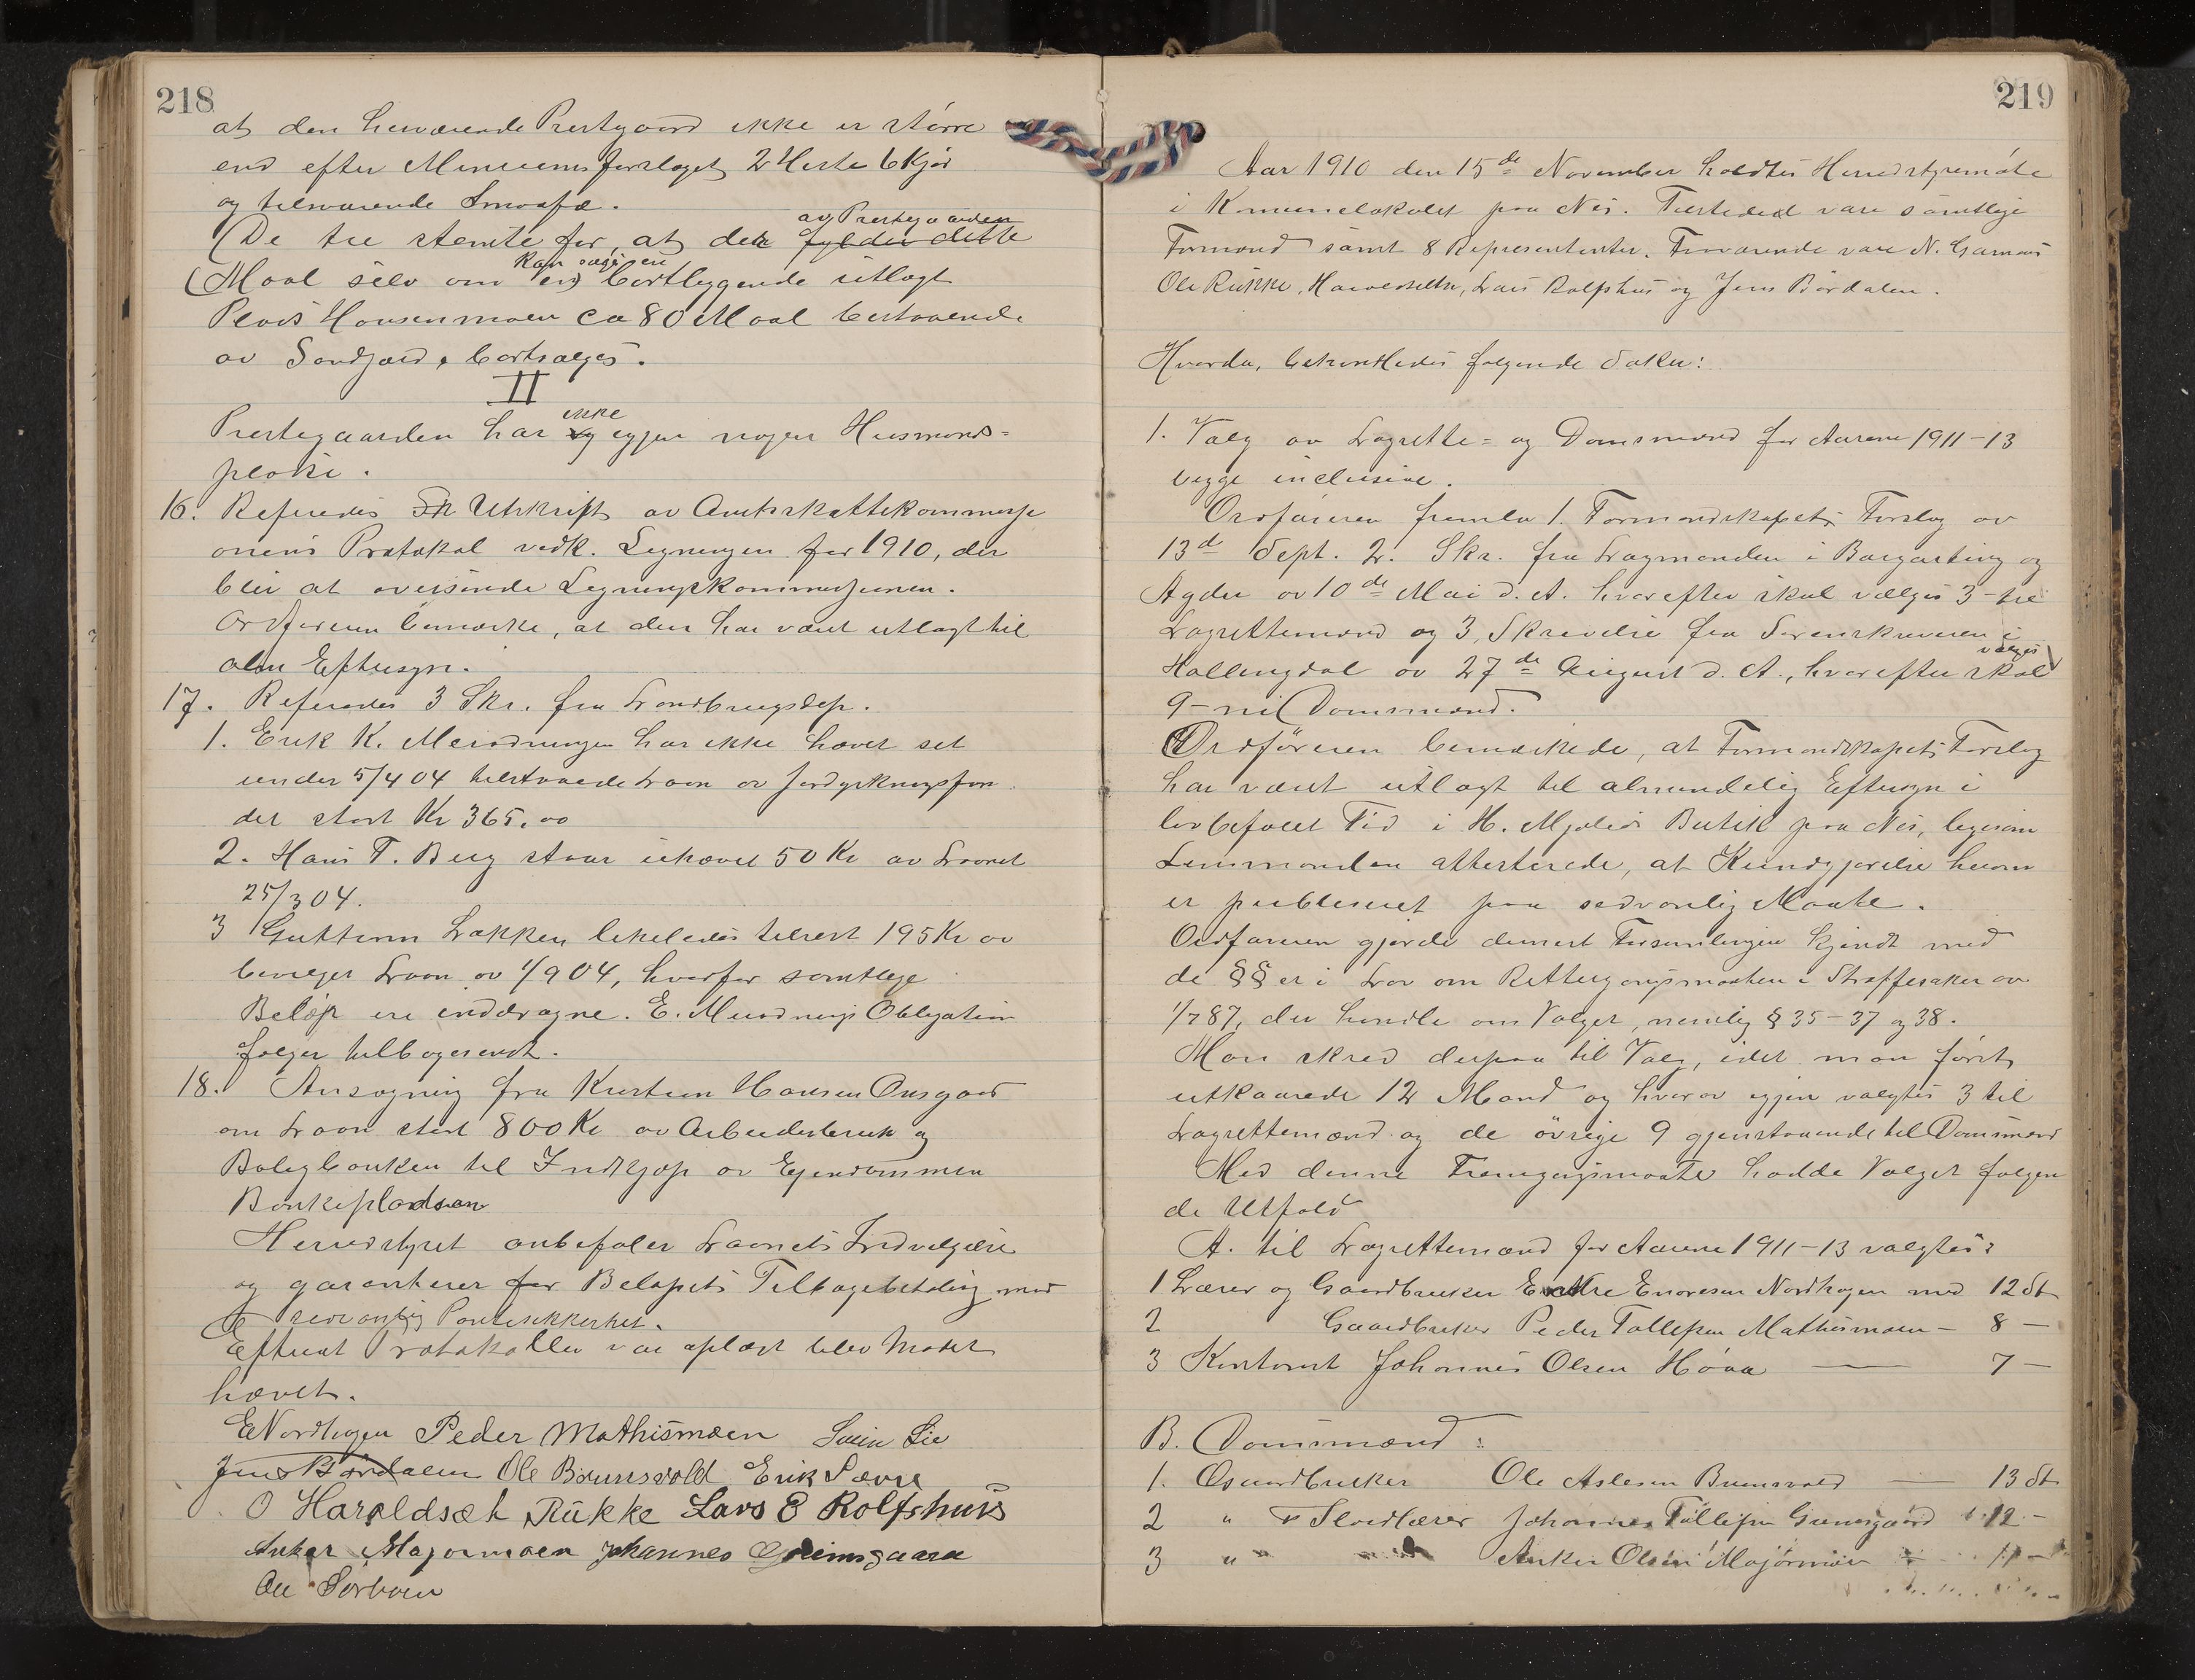 218
at den herværende Prestgaard ikke er større
end efter Minimumsforslaget, 2 Heste 6 Kjør
og tilsvarende Smaafæ.
av Prestegaarden
De tre stemte for, at der fylder dette
kan sægs en
Maal selv om en bortliggende utlagt
Plads Hansenmoen ca 80 Maal bestaaende
av Sandjord, bortsælges.
II
ikke
Prestegaarden har og egjen nogen Husmands=
pladse.
16. Referedes En Utskrift av Amtsskattekommissi
onens Protokol vedk. Ligningen for 1910, der
blir at oversende Ligningskommissionen.
Ordføreren bemærke, at den har vært utlagt til
alm Eftersyn.
17. Referedes 3 Skr. fra Landbrugsdep.
1. Erik K. Meiodningen har ikke hævet set
under 5/4 04 tilstaaede Laan av Jordyrkningsfon
det stort Kr 365.00
2. Hans T. Berg staar uhævet 50 Kr av Laanet
25/3 04.
3 Guttorm Løkken likeledes tilrest 195 Kr av
bevilget Laan av 1/9 04, hvorfor samtlige
Beløp er inddragne. E. Meiodnings Obligation
følger tilbagesendt.
18. Ansøgning fra Kristian Hansen Onsgaard
om Laan stort 800 Kr av Arbeiderbruk og
Boligbanken til Indkjøp av Ejendommen
Bankepladsen
Herredstyret anbefaler Laanets Indvilgelse
og garanterer for Beløpets Tilbagebetaling mod
sedvanlig Pantesikkerhet.
Efterat Protokollen var oplæst blev Mødet
hævet.
E Nordhagen Peder Mathismoen Svein Lie
Jens Bårdalen Ole Brunsvold Erik Sævre
O Haraldset Rukke Lars E Rolfshus
Anker Majormoen Johannes Grimsgaard
Ole Sørbøen
219
Aar 1910 den 15de November holdtes Herredstyremøte
i Komunelokalet paa Nes. Tilstede vare samtlige
Formænd samt 8 Represententer. Fraværende vare N. Garnaas
Ole Rukke, Haraldsethr, Lars Rolfshus og Jens Bårdalen.
Hvorda, behandledes følgende Saker:
1. Valg av Lagrette= og Domsmænd for Aarene 1911-13
begge inclusive.
Ordføreren fremla 1. Formandskapets Forslag av
13de Sept. 2. Skr. fra Lagmanden i Borgarting og
Agder av 10de Mai d. A. hvorefter skal vælges 3-tre
Lagrettemænd og 3, Skrivelse fra Sorenskriveren i
vælges
Hallingdal av 27de August d. A., hvorefter skal
9-ni Domsmænd.
Ordføreren bemærkede, at Formandskapets Forslag
har vært utlagt til almindelig Eftersyn i
lovbefalet Tid i H. Mjøleds Butik paa Nes, ligesom
Lensmanden attesterede, at Kundgjørelse herom
er publiseret paa sedvanlig Maate.
Ordføreren gjorde dernest Forsamlingen kjendt med
de §§ er i Lov om Rettergangsmaaten i Straffesaker av
1/7 87, der handle om Valget, nemlig § 35-37 og 38.
Man skred derpaa til Valg, idet man først
utkaarede 12 Mand og hvorav igjen valgtes 3 til
Lagrettemænd og de övrige 9 gjenstaaende til Domsmænd
Med denne Fremgangsmaate hadde Valget følgen
de Utfald
A. til Lagrettemænd for Aarene 1911-13 valgtes:
1 Lærer og Gaardbruker Endre Enoresen Nordhagen med 12 St
2 Gaardbruker Peder Tollefsen Mathismoen - 8 -
3 Kontorist Johannes Olsen Hóva — 7 -
B. Domsmænd:
1. Gaardbruker Ole Aslesen Brunsvold — 13 St
2 " & Sløidlærer Johannes Tollefsen Grimsgaard 12 -
3 " Anker Olsen Majormoen 11 -